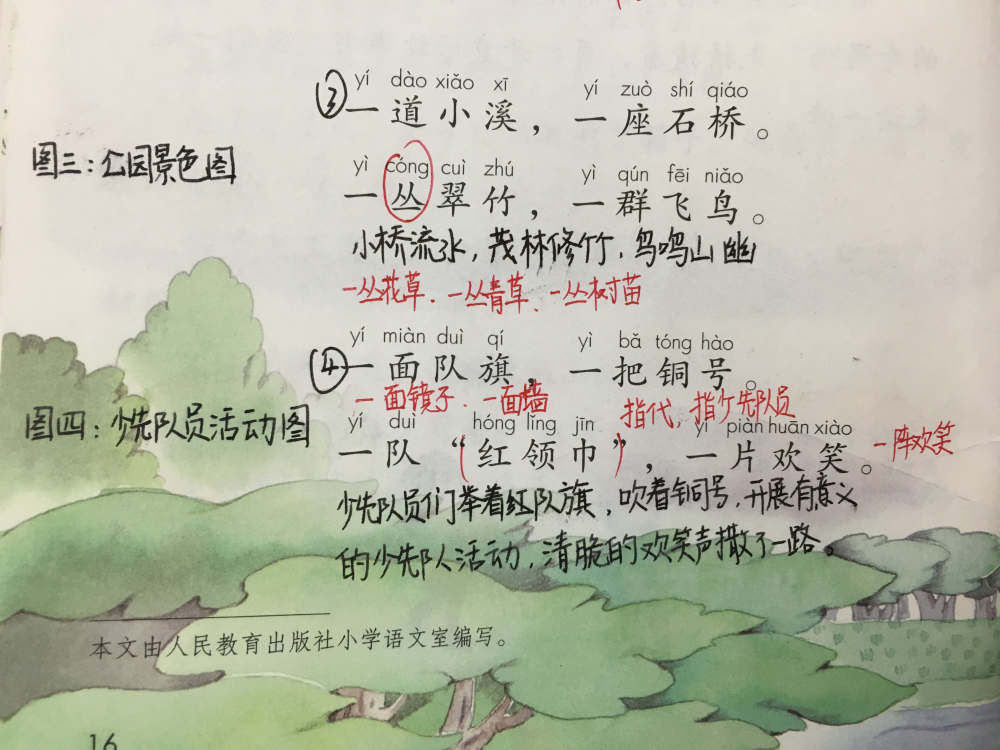 yí dào xiǎo xī yí zuò shí qiáo
③一道小溪，一座石桥。
图三：公园景色图
yì cóng cuì zhú yì qún fēi niǎo
一丛翠竹，一群飞鸟。
小桥流水，茂林修竹，鸟鸣山幽
一丛花草、一丛青草、一丛树苗
yí miàn duì qí yì bǎ tóng hào
④一面队旗，一把铜号。
一面镜子、一面墙
指代，指少先队员
图四：少先队员活动图
yí duì hóng lǐng jīn yí piàn huān xiào
一队“红领巾”，一片欢笑。
一阵欢笑
少先队员们举着红队旗，吹着铜号，开展有意义
的少先队活动，清脆的欢笑声撒了一路。
本文由人民教育出版社小学语文室编写。
16